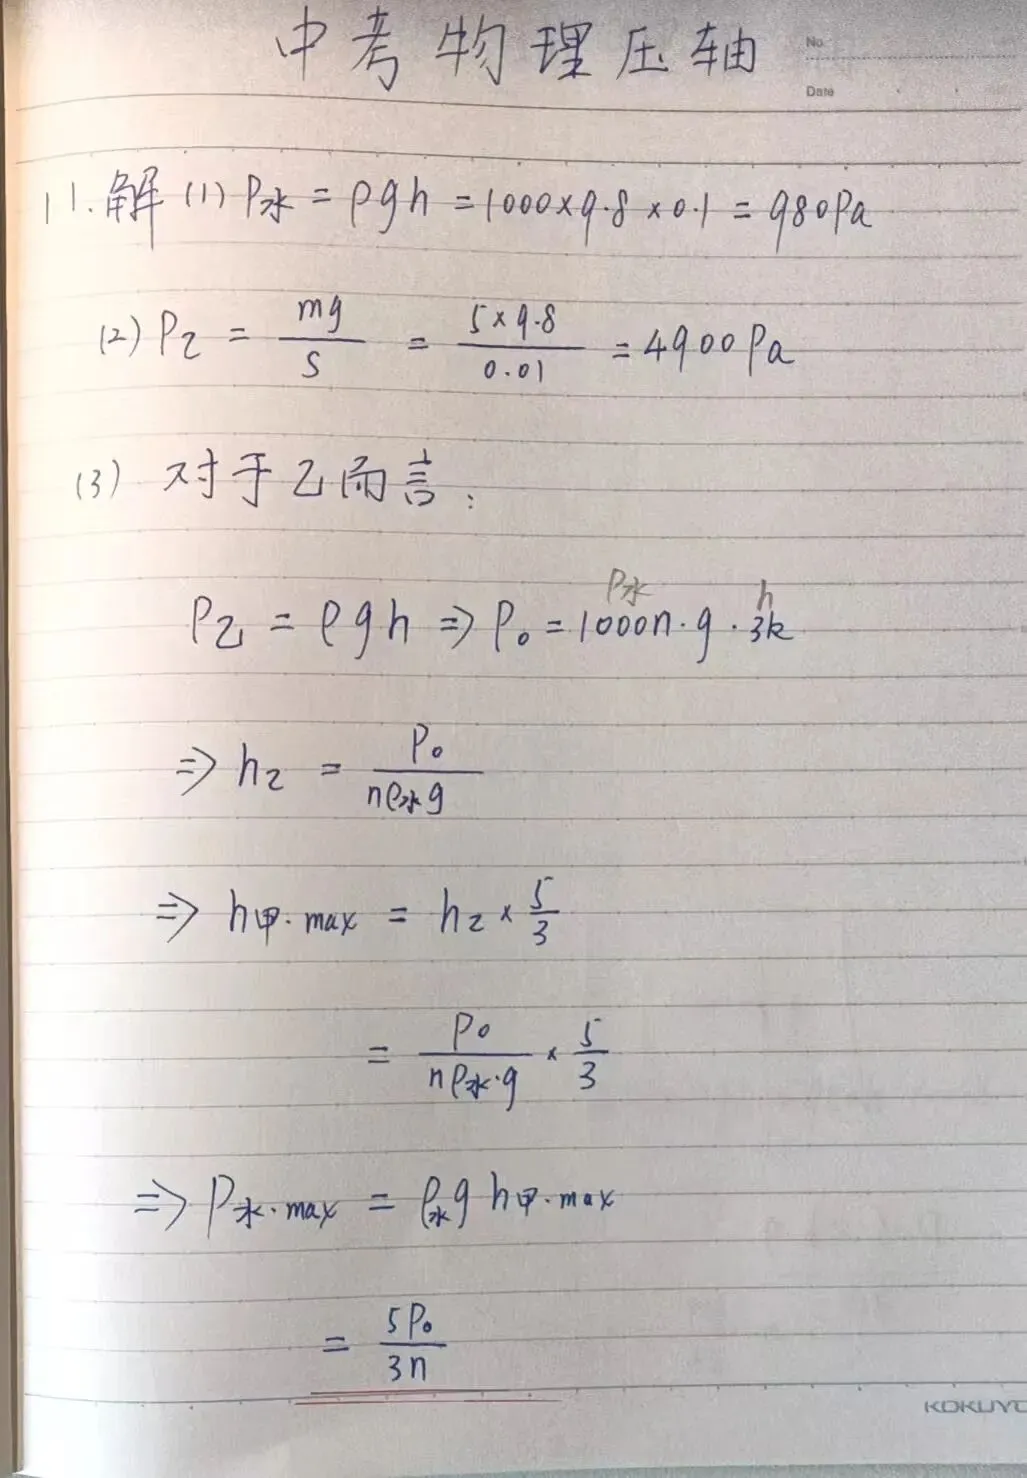 中考物理压轴
No.
Date
11.解(1) P水 = ρgh = 1000×9.8×0.1 = 980Pa
(2) P乙 = mg/S = 5×9.8/0.01 = 4900Pa
(3) 对于乙而言:
P水 h
P乙 = ρgh ⇒ P₀ = 1000n·g·3k
⇒ h乙 = P₀/nρ水g
⇒ h甲·max = h乙 × 5/3
= P₀/nρ水·g × 5/3
⇒ P水·max = ρ水g h甲·max
= 5P₀/3n
KOKUYO